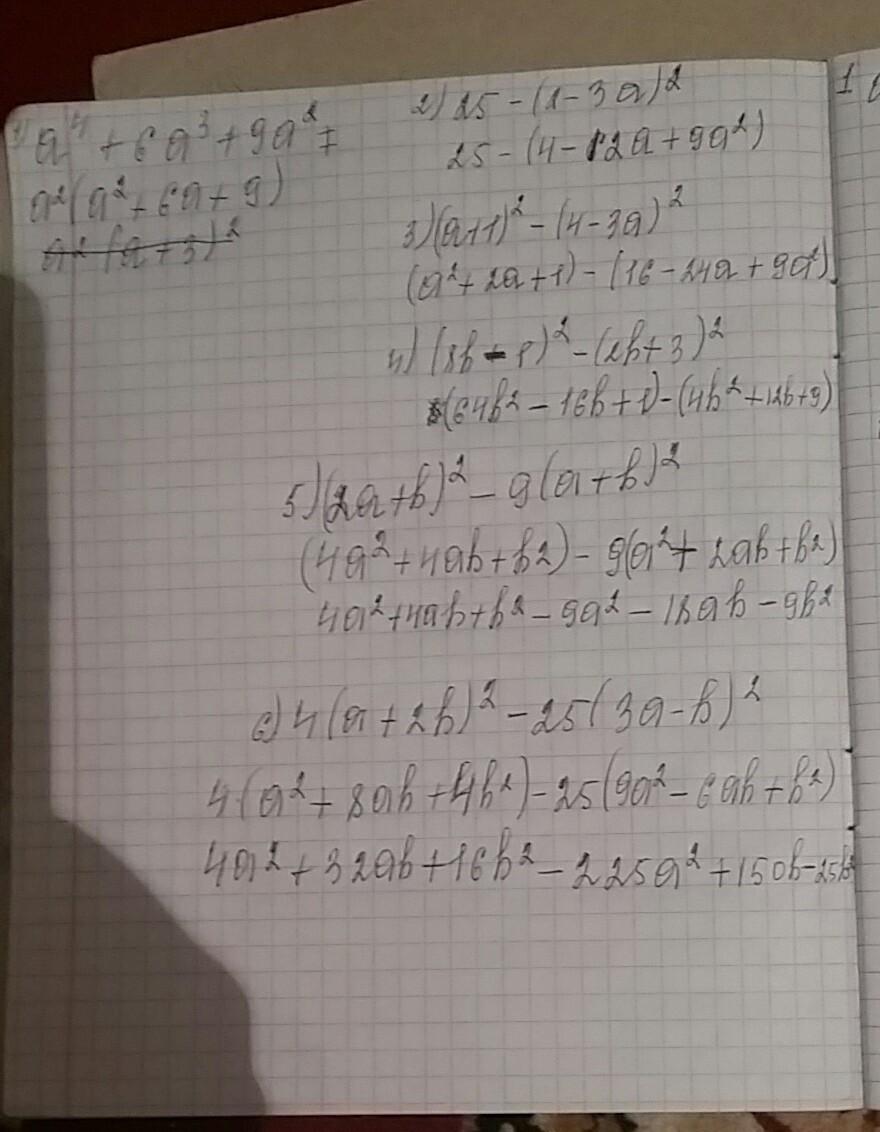 1) a⁴ + 6a³ + 9a² =
a²(a² + 6a + 9)
a² (a + 3)²
2) 25 - (2 - 3a)²
25 - (4 - 12a + 9a²)
3) (a+1)² - (4 - 3a)²
(a² + 2a + 1) - (16 - 24a + 9a²)
4) (8b - 1)² - (2b + 3)²
(64b² - 16b + 1) - (4b² + 12b + 9)
5) (2a + b)² - 9(a + b)²
(4a² + 4ab + b2) - 9(a² + 2ab + b²)
4a² + 4ab + b² - 9a² - 18ab - 9b²
6) 4(a + 2b)² - 25(3a - b)²
4(a² + 8ab + 4b²) - 25(9a² - 6ab + b²)
4a² + 32ab + 16b² - 225a² + 150b - 25b²
1